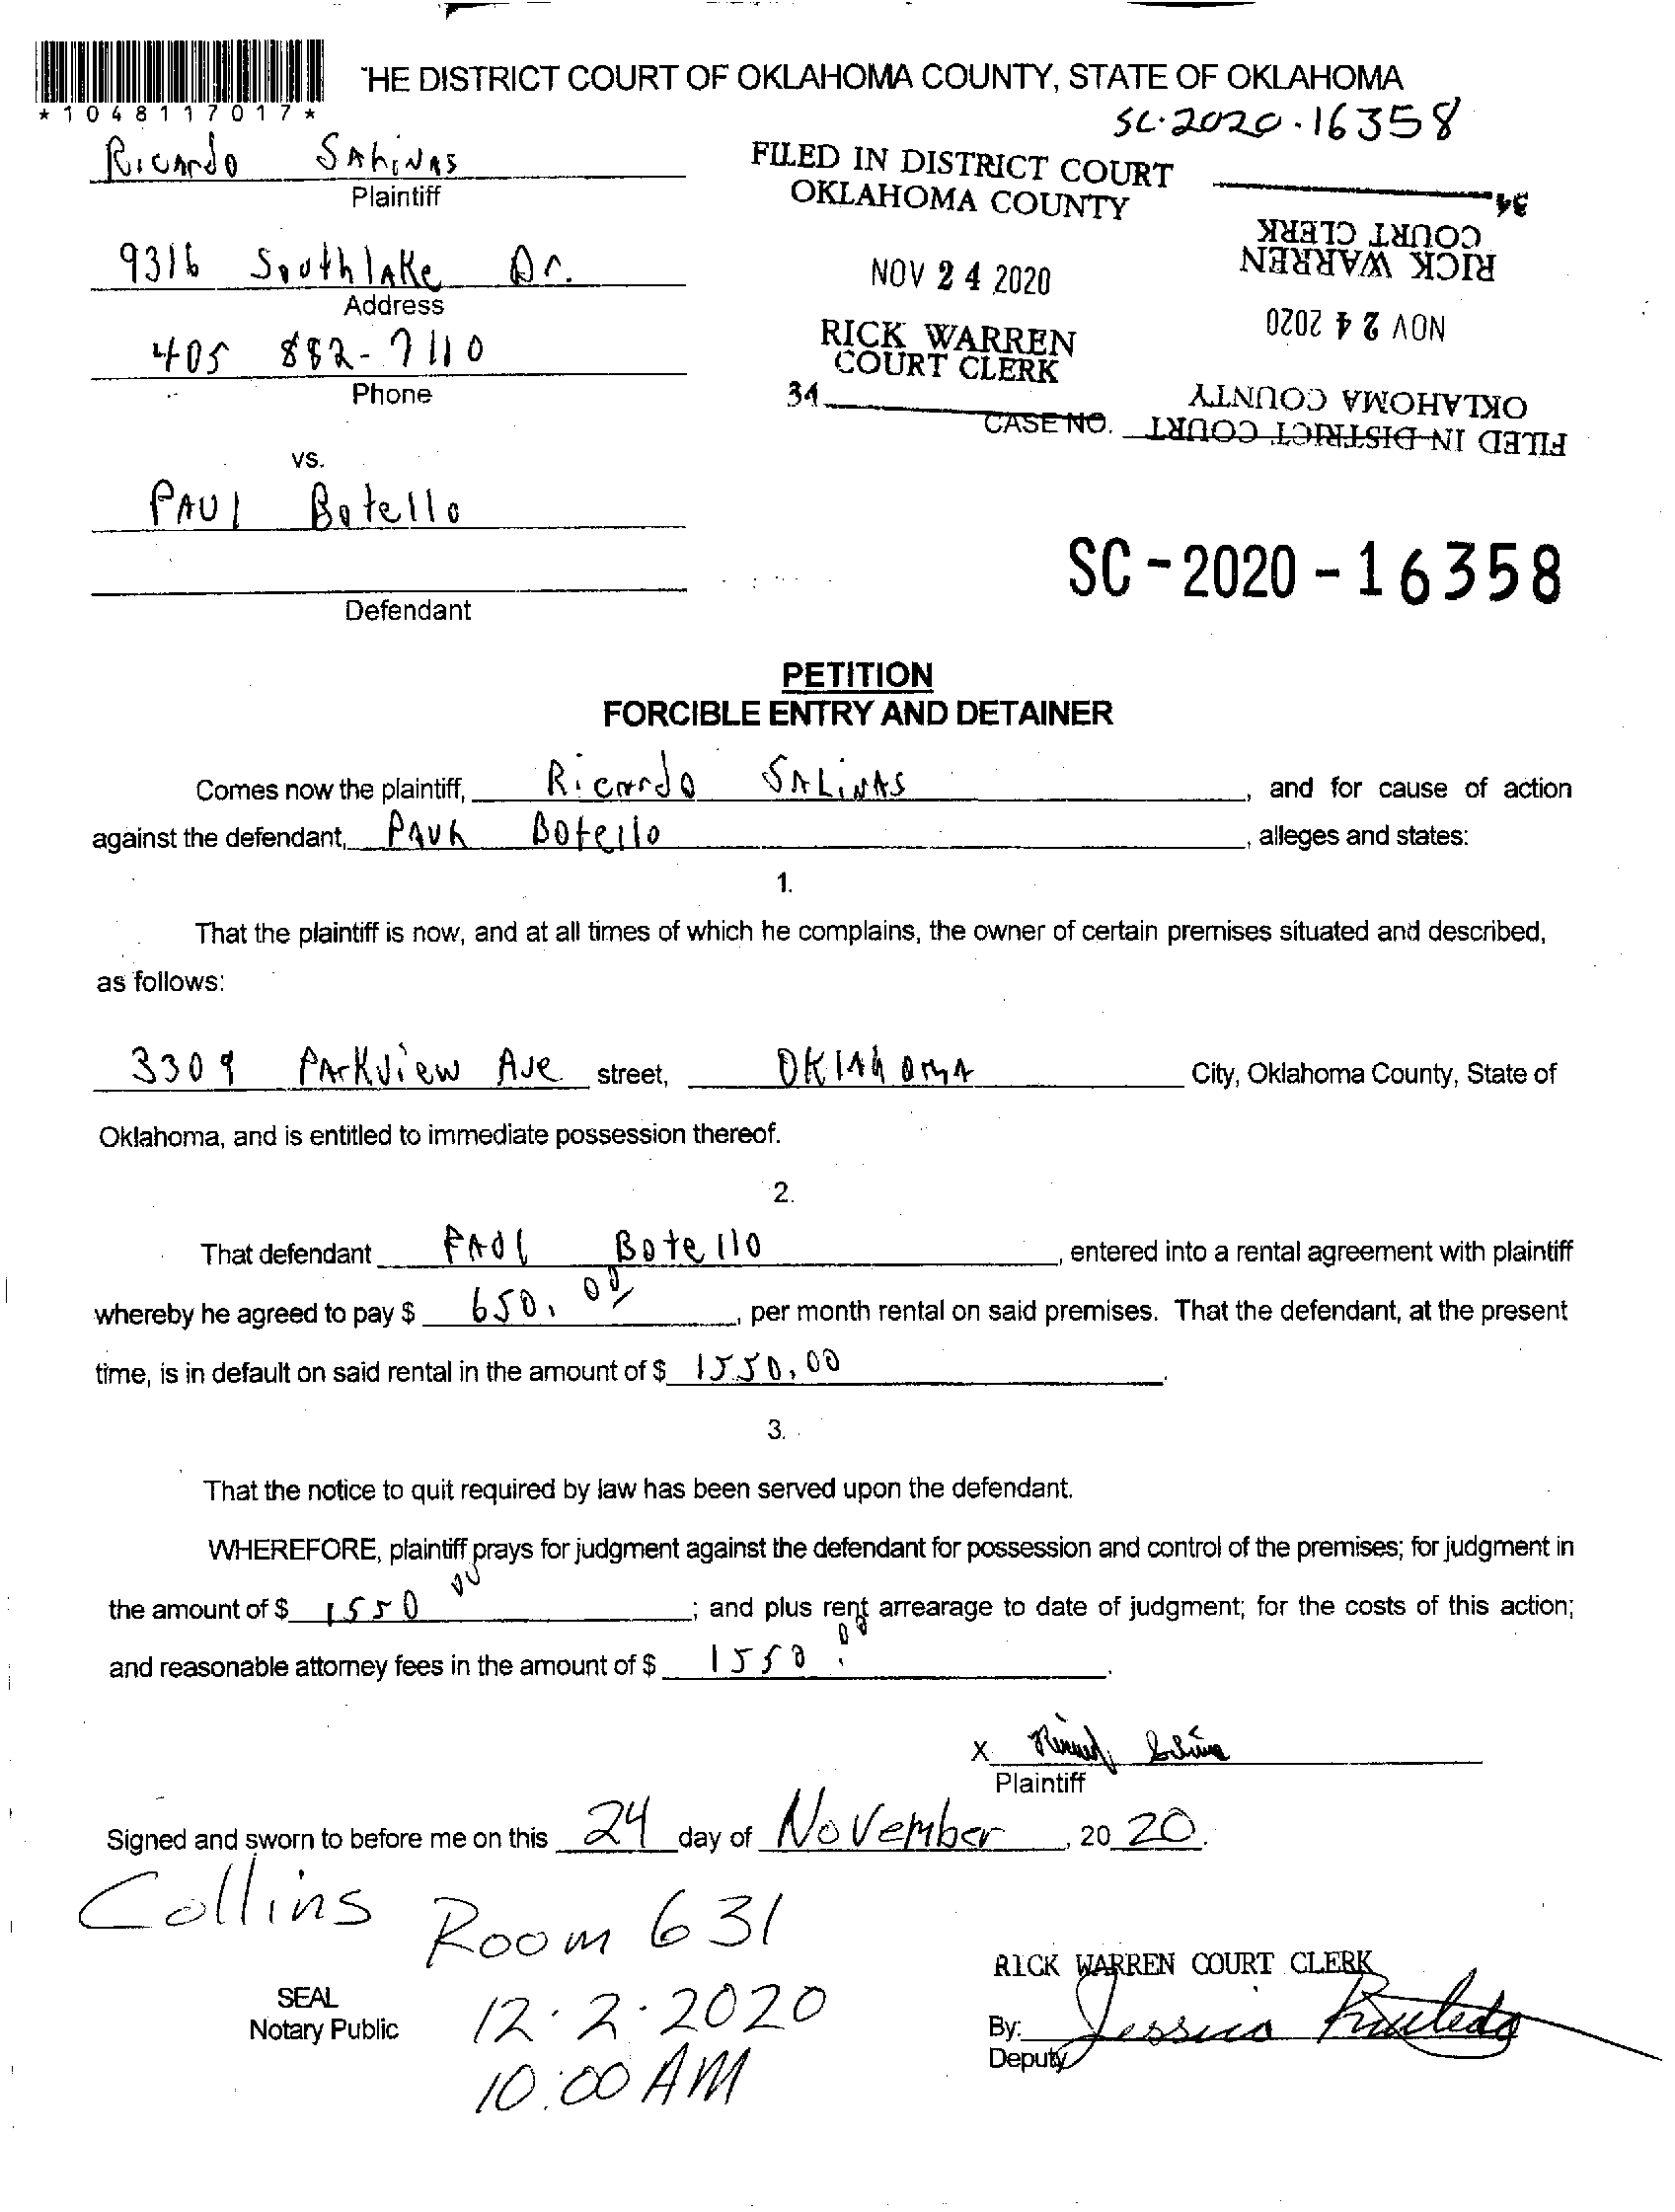 'HE DISTRICT COURT OF OKLAHOMA COUNTY, STATE OF OKLAHOMA
*1048117017*
SC-2020-16358
Ricardo Salinas
Plaintiff
FILED IN DISTRICT COURT
OKLAHOMA COUNTY
NOV 24 2020
RICK WARREN
COURT CLERK
34
FILED IN DISTRICT COURT
OKLAHOMA COUNTY
NOV 24 2020
RICK WARREN
COURT CLERK
34
9316 Southlake Dr.
Address
405 882-7110
Phone
CASE NO.
vs.
Paul Botello
Defendant
SC-2020-16358
PETITION
FORCIBLE ENTRY AND DETAINER
Comes now the plaintiff, Ricardo Salinas, and for cause of action
against the defendant, Paul Botello, alleges and states:
1.
That the plaintiff is now, and at all times of which he complains, the owner of certain premises situated and described,
as follows:
3309 Parkview Ave street, Oklahoma City, Oklahoma County, State of
Oklahoma, and is entitled to immediate possession thereof.
2.
That defendant Paul Botello, entered into a rental agreement with plaintiff
whereby he agreed to pay $ 650.00, per month rental on said premises. That the defendant, at the present
time, is in default on said rental in the amount of $ 1550.00.
3.
That the notice to quit required by law has been served upon the defendant.
WHEREFORE, plaintiff prays for judgment against the defendant for possession and control of the premises; for judgment in
the amount of $ 1550 00; and plus rent arrearage to date of judgment; for the costs of this action;
and reasonable attorney fees in the amount of $ 1550.00.
X
Plaintiff
Signed and sworn to before me on this 24 day of November, 20 20.
Collins Room 631
12.2.2020
10:00 AM
SEAL
Notary Public
RICK WARREN COURT CLERK
By: Jessica
Deputy